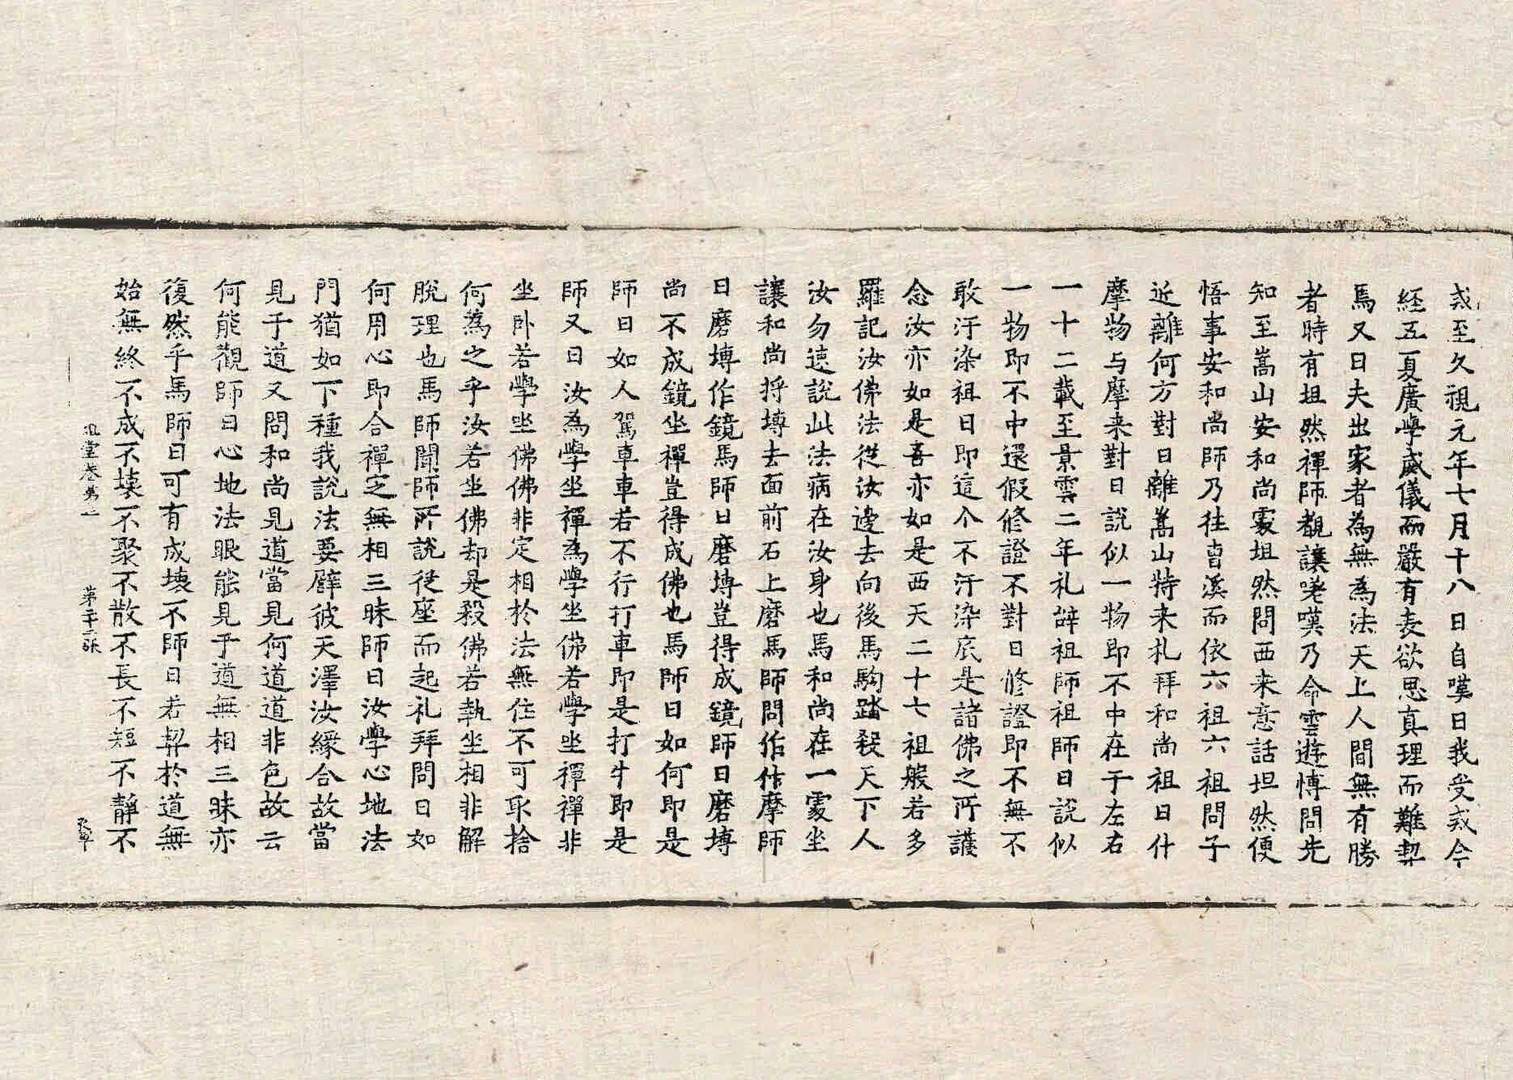 戒至久視元年七月十八日自嘆曰我受戒今
経五夏廣學威儀而嚴有表欲思真理而難契
焉又曰夫出家者為無為法天上人間無有勝
者時有坦然禪師覩讓嗟嘆乃命雲遊愽問先
知至嵩山安和尚䖏坦然問西来意話坦然便
悟事安和尚師乃往曺溪而依六祖六祖問子
近離何方對曰離嵩山特来礼拜和尚祖曰什
摩物与摩来對曰說似一物即不中在于左右
一十二載至景雲二年礼辞祖師祖師曰說似
一物即不中還假修證不對曰修證即不無不
敢汙染祖曰即這个不汙染底是諸佛之所護
念汝亦如是吾亦如是西天二十七祖般若多
羅記汝佛法從汝邊去向後馬駒蹹殺天下人
汝勿速說此法病在汝身也馬和尚在一䖏坐
讓和尚捋塼去面前石上磨馬師問作什摩師
曰磨塼作鏡馬師曰磨塼豈得成鏡師曰磨塼
尚不成鏡坐禪豈得成佛也馬師曰如何即是
師曰如人駕車車若不行打車即是打牛即是
師又曰汝為學坐禪為學坐佛若學坐禪禪非
坐卧若學坐佛佛非定相於法無住不可取捨
何為之乎汝若坐佛却是殺佛若執坐相非解
脫理也馬師聞師所說從座而起礼拜問曰如
何用心即合禪定無相三昧師曰汝學心地法
門猶如下種我說法要譬彼天澤汝緣合故當
見于道又問和尚見道當見何道道非色故云
何能觀師曰心地法眼能見乎道無相三昧亦
復然乎馬師曰可有成壊不師曰若契於道無
始無終不成不壊不聚不散不長不短不靜不
堂卷第